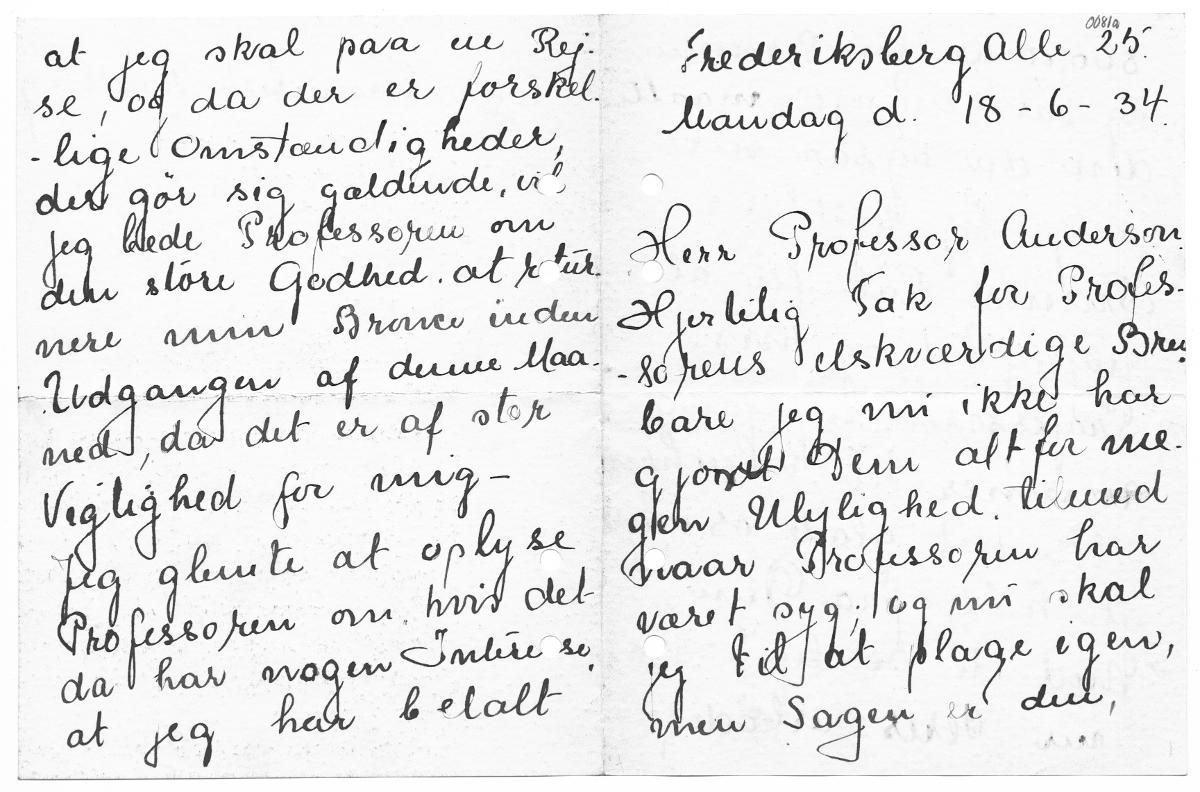 0081a
Frederiksberg Alle 25.
Mandag d. 18-6-34.
Herr Professor Anderson.
Hjertelig Tak for Profes-
-sorens elskværdige Brev,
bare jeg nu ikke har
gjort Dem alt for me-
gen Ulylighed. tilmed
naar Professoren har
været syg; og nu skal
jeg til at plage igen,
men Sagen er den,
at jeg skal paa en Rej-
se, og da der er forskel-
-lige Omstændigheder,
der gör sig gældende, vil
jeg bede Professoren om
den störe Godhed. at retur-
nere min Bronce inden
Udgangen af denne Maa-
ned, da det er af stor
Vigtighed for mig-
Jeg glemte at oplyse
Professoren om, hvis det
da har nogen Interesse,
at jeg har betalt